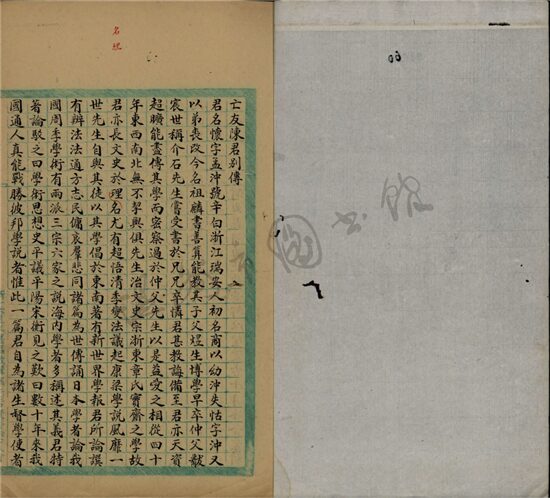 亡友陳君別傳
君名懷字孟沖號辛白浙江瑞安人初名商以幼沖失怙字沖又
以弟喪改今名祖麟書善算能教其子父煜生博學早卒仲父黻
宸世稱介石先生嘗受書於兄兄卒憐君甚教誨備至君亦天資
超曠能盡傳其學而密察過於仲父先生以是益愛之相從四十
年東西南北無不挈與俱先生治文史宗浙東章氏實齋之學故
君亦長文史於理名尤有超悟清季變法議起康梁學說風靡一
世先生自與其徒以其學倡於東南著有新世界學報君所論譔
有辦法法通方志民傭哀羣悲同諸篇為世傳誦日本學者論我
國周季學術有兩派三宗六家之說海內學者多稱述其義君特
著論駁之曰學術思想史平議平陽宋衡見之歎曰數十年來我
國通人真能戰勝彼邦學說者惟此一篇君自為諸生督學使者
名理
圖書館